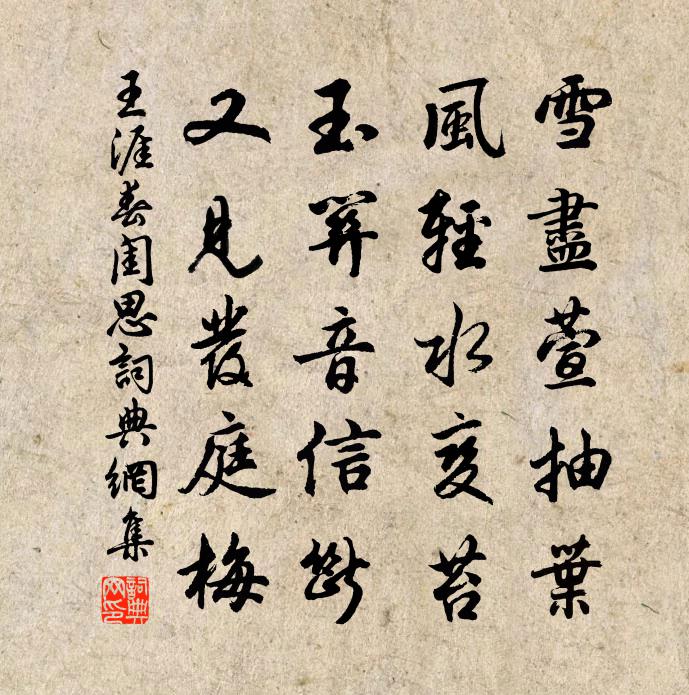 雪盡萱抽葉
風輕水變苔
玉關音信斷
又見發庭梅
王涯春閨思詞典網集
詞典网印